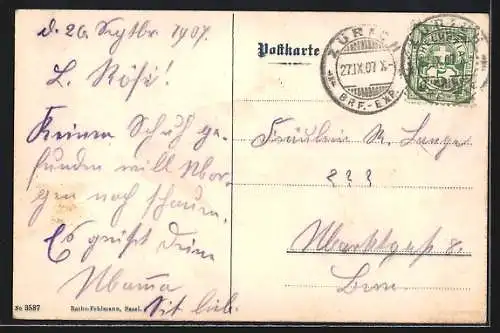 d. 26 Septbr 1907.
L. Rösi!
Keinen Schuh ge-
funden will Mor-
gen noch schauen.
Es grüsst Deine
Mama
Postkarte
ZÜRICH
27.IX.07.X-
BRF.-EXP.
HELVETIA
Fräulein R.
Marktgasse 8.
Bern.
No 3587
Basel.